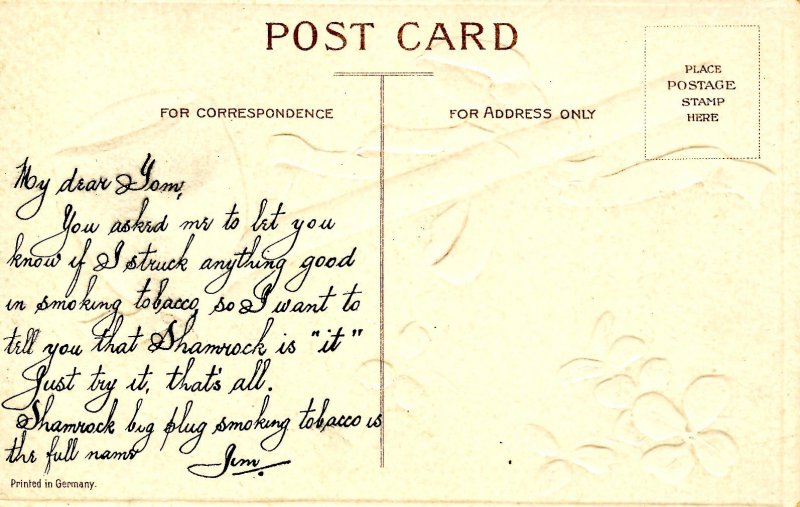 POST CARD
FOR CORRESPONDENCE
FOR ADDRESS ONLY
PLACE
POSTAGE
STAMP
HERE
My dear Tom,
You asked me to let you
know if I struck anything good
in smoking tobacco, so I want to
tell you that Shamrock is "it"
Just try it, that's all.
Shamrock big plug smoking tobacco is
the full name
Jim.
Printed in Germany.